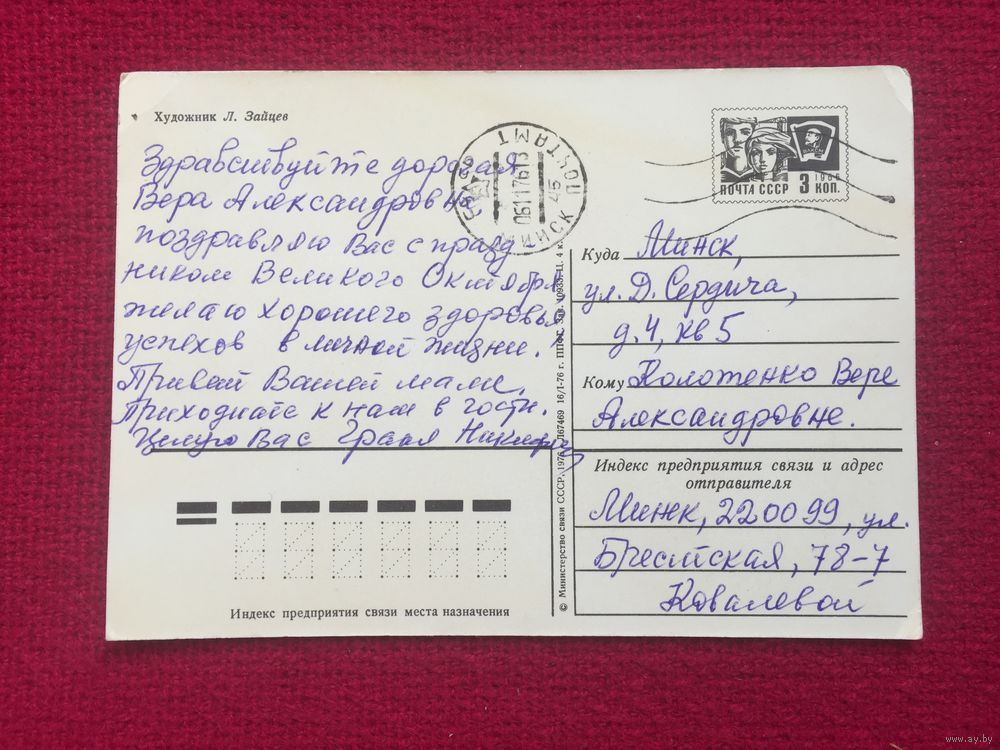 Художник Л. Зайцев
Здравствуйте дорогая
Вера Александровна
поздравляю Вас с празд
ником Великого Октября
желаю хорошего здоровья
успехов в личной жизни.
Привет Вашей маме.
Приходите к нам в гости.
Целую Вас
ПОЧТА СССР 3 КОП.
1966
МИНСК ПОЧТАМТ
СССР
061176 13
45
Куда Минск,
ул. Д. Сердича,
д. 4, кв 5
Кому Колотенко Вере
Александровне.
Индекс предприятия связи и адрес
отправителя
Минск, 220099, ул.
Брестская, 78-7
Ковалевой
Индекс предприятия связи места назначения
© Министерство связи СССР, 1976. 167469 16/I-76 г. ППФГ. Зак. Ц. 4 к.
www.ay.by